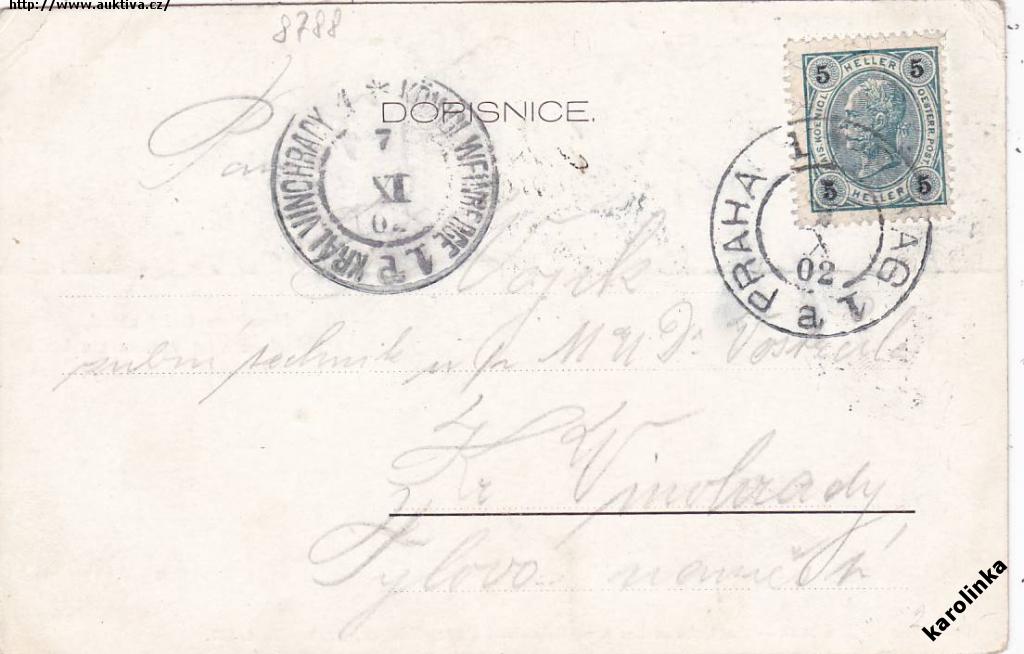 http://www.auktiva.cz/
8788
DOPISNICE.
KRÁL VINOHRADY 1 * KÖNIGL WEINBERGE 1
7
XI
02
5 HELLER 5
KAIS. KOENIGL. OESTERR. POST
5 HELLER 5
PRAHA 1 PRAG
X
02
a
Pan
Vojek
zubní technik u p. MUDr
v
Kr Vinohrady
Tylovo náměstí
karolinka